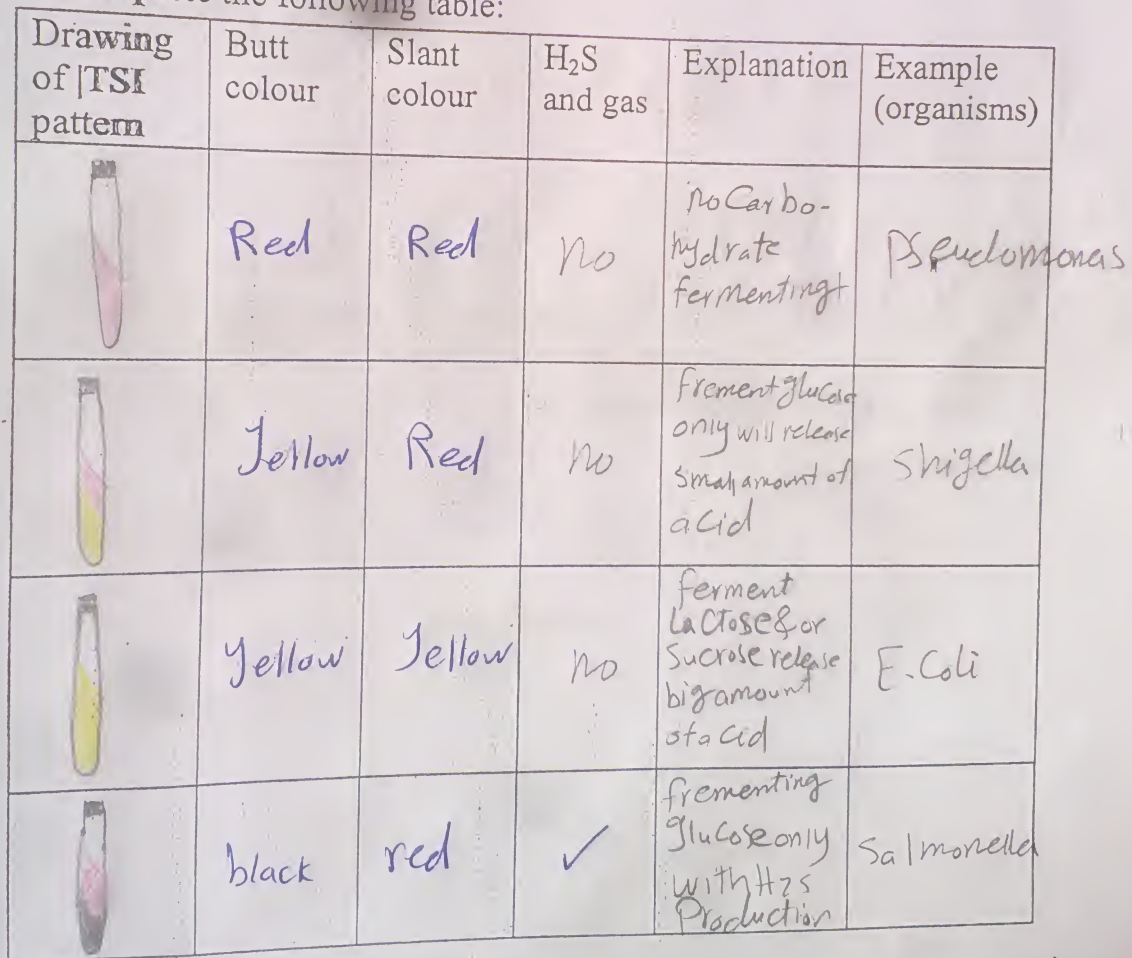 the following table:
Drawing
of |TSI
pattern
Butt
colour
Slant
colour
H₂S
and gas
Explanation
Example
(organisms)
Red
Red
no
no Carbo-
hydrate
fermenting
Pseudomonas
Jellow
Red
no
frement glucose
only will release
small amount of
acid
Shigella
yellow
Jellow
no
ferment
Lactose & or
Sucrose release
big amount
of acid
E. Coli
black
red
✓
frementing
glucose only
with H2S
Production
Salmonella